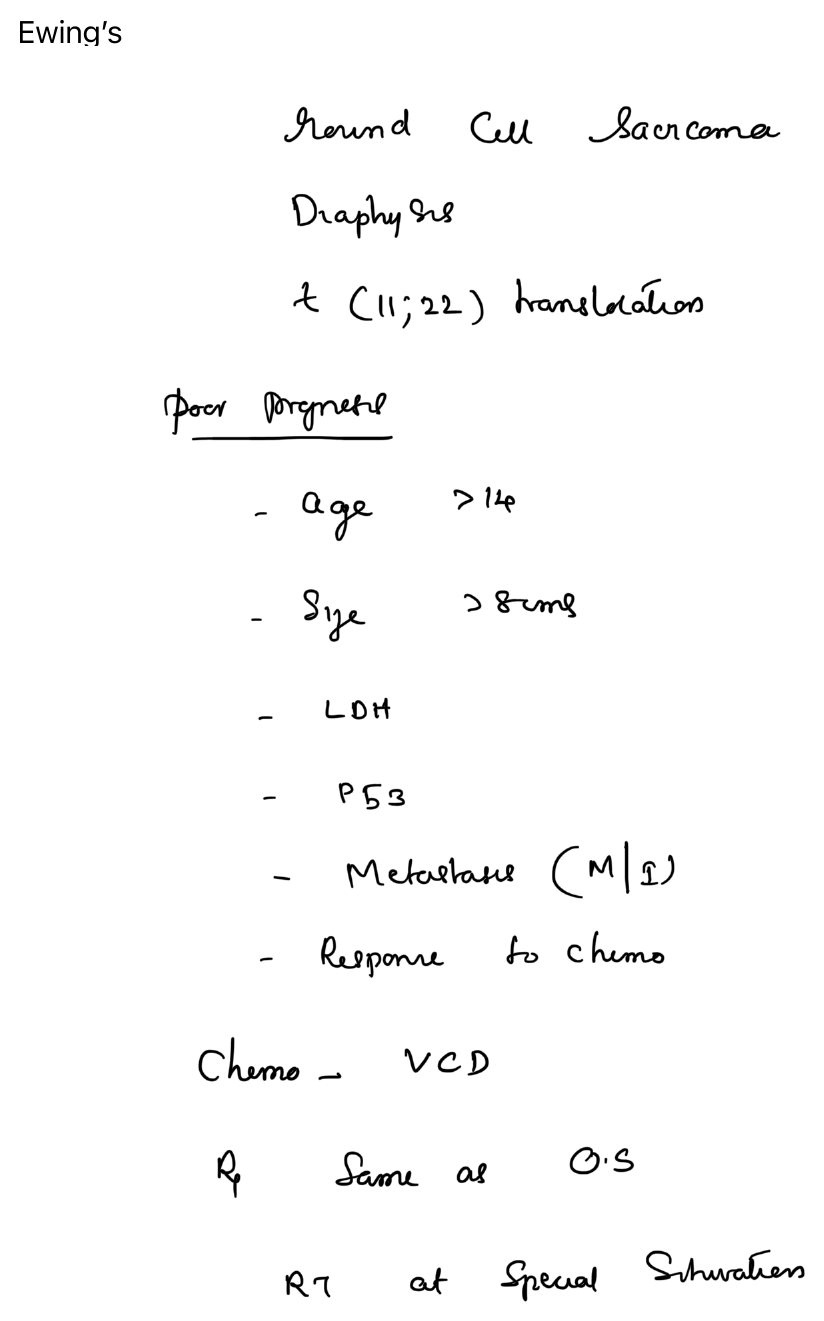 Ewing's
Round Cell Sarcoma
Diaphysis
t (11;22) translocation
Poor Prognosis
- Age >14
- Size > 8cms
- LDH
- P53
- Metastasis (M|I)
- Response to chemo
Chemo - VCD
Rx Same as O.S
RT at Special Situations